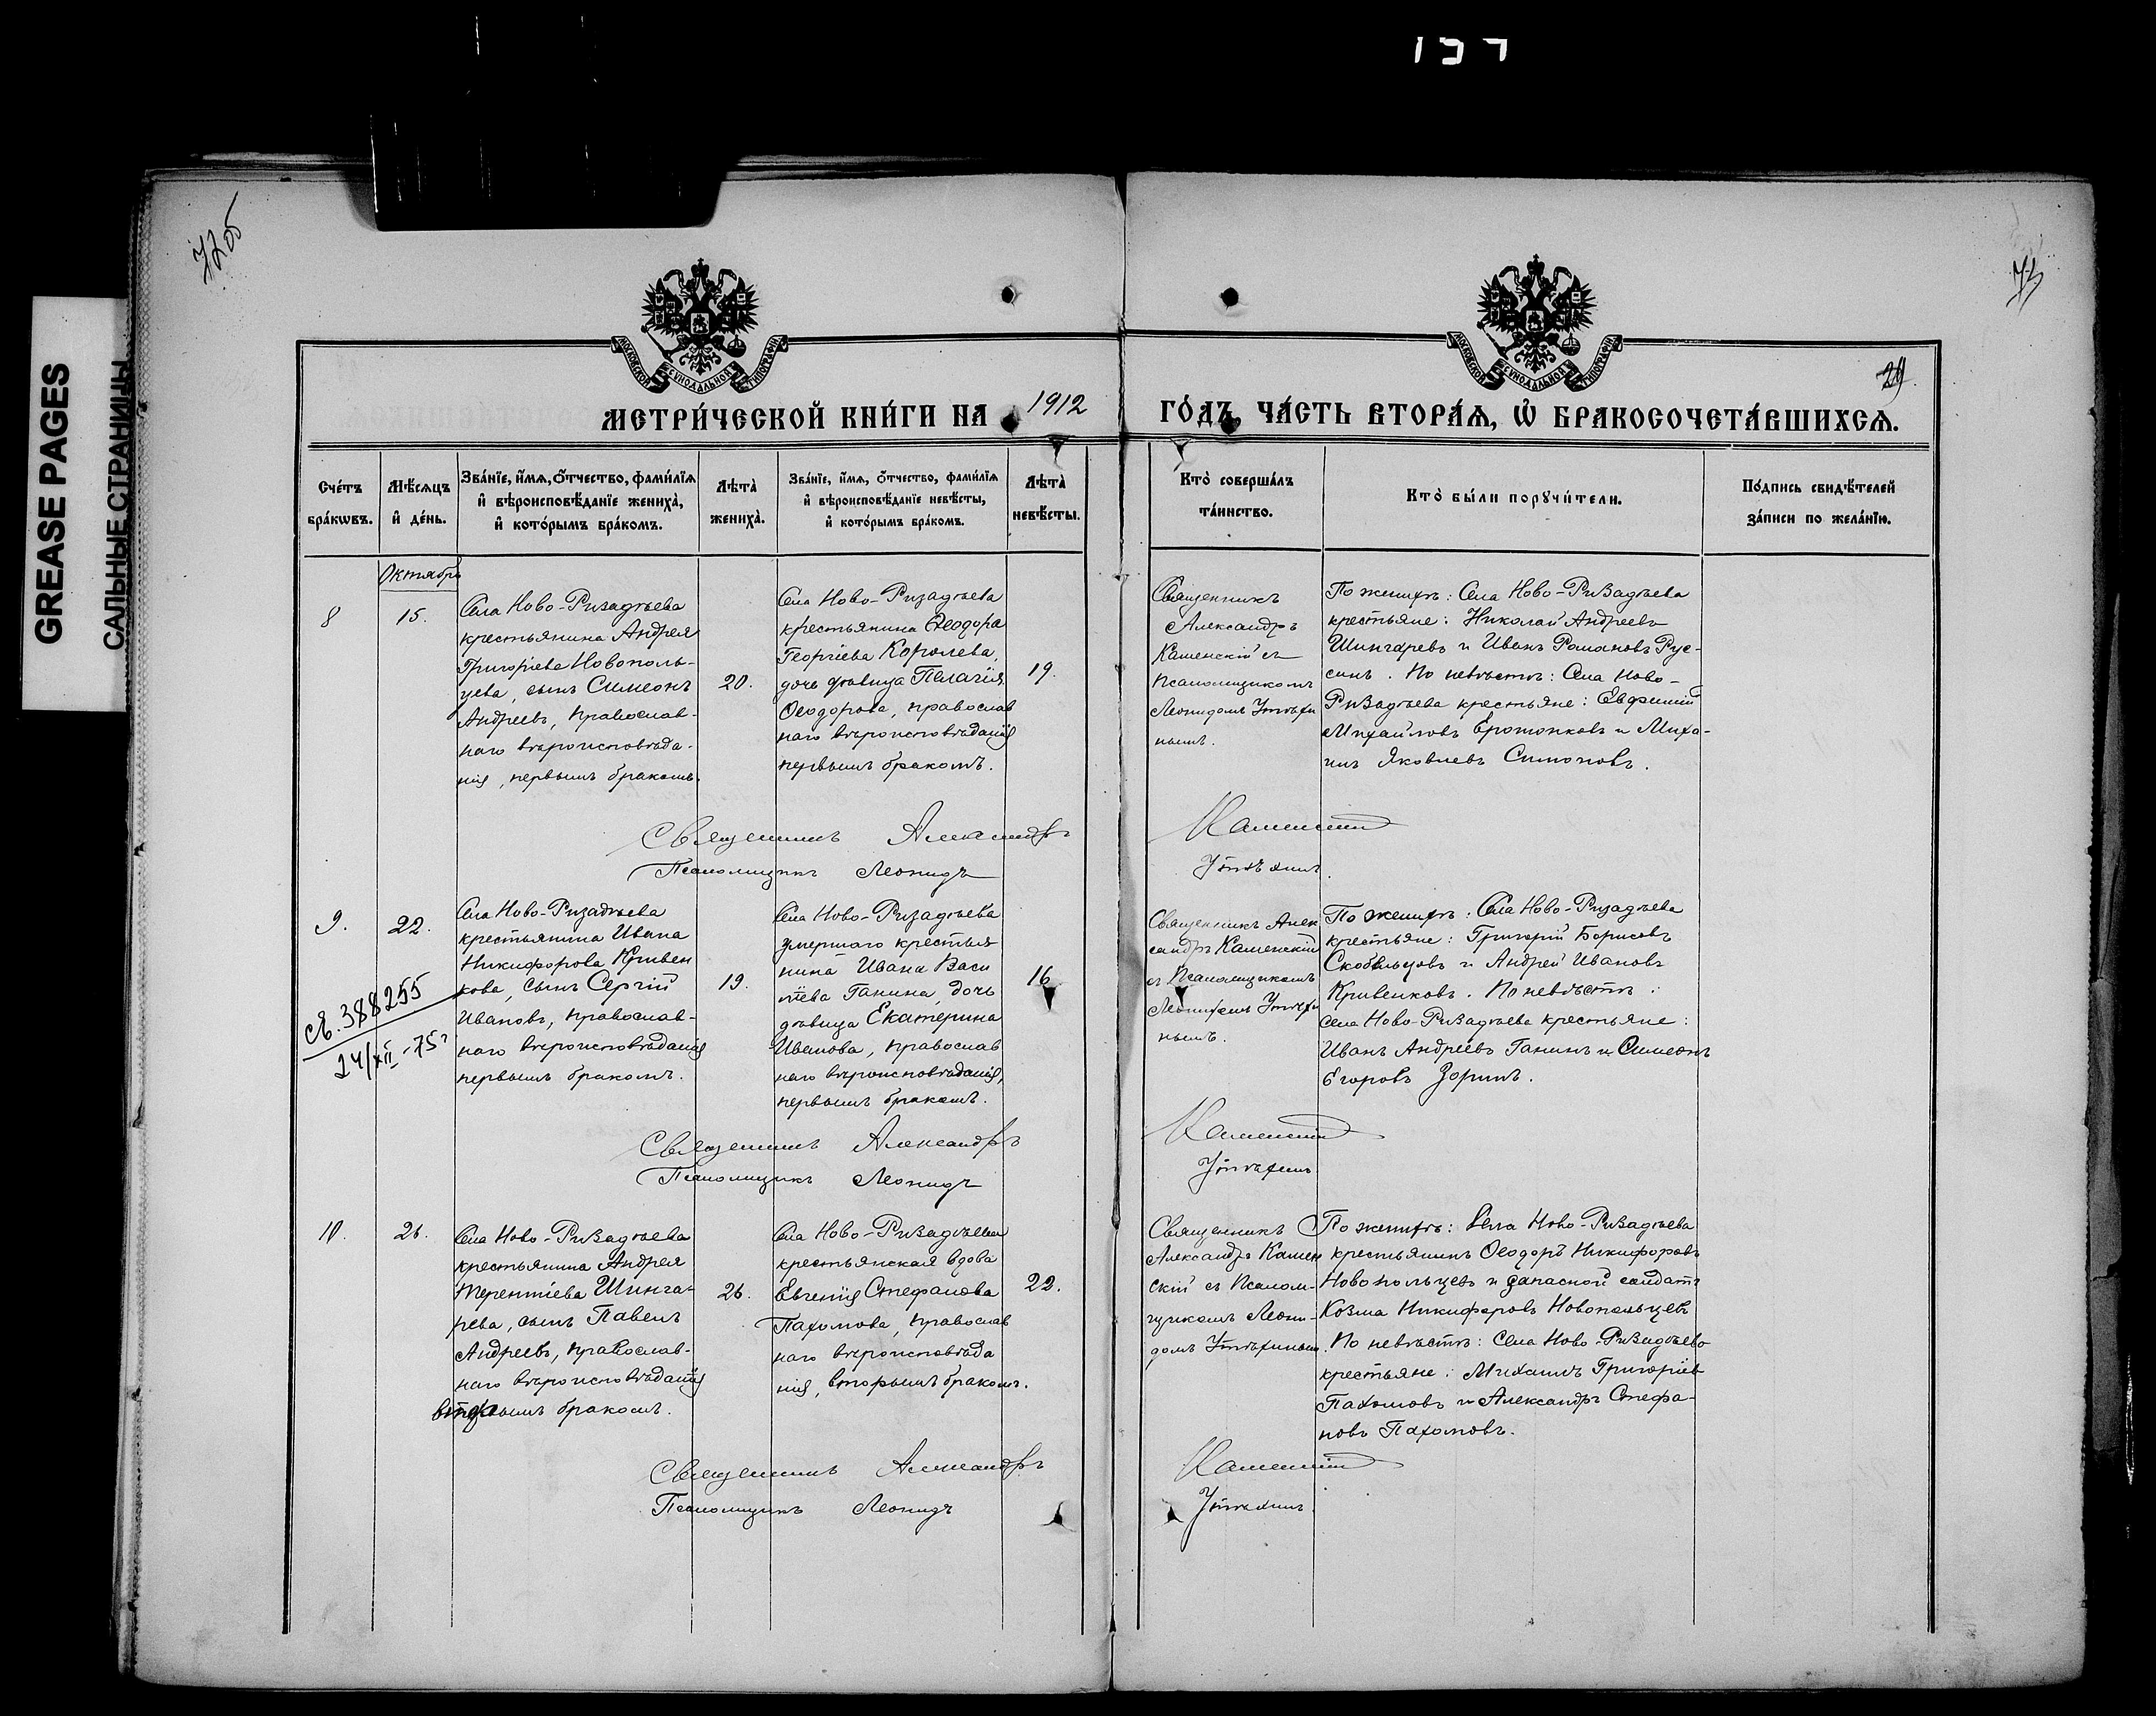 GREASE PAGES
САЛЬНЫЕ СТРАНИЦЫ
72об
73
29
МОСКОВСКОЙ СѴНОДАЛЬНОЙ ТИПОГРАФІИ
МОСКОВСКОЙ СѴНОДАЛЬНОЙ ТИПОГРАФІИ
МЕТРИ́ЧЕСКОЙ КНИ́ГИ НА 1912 ГО́ДЪ, ЧА́СТЬ ВТОРА́Ѧ, Ѽ БРАКОСОЧЕТА́ВШИХСѦ.
Сче́тъ
бра́кѡвъ.
Мѣ́сяцъ
и҆ де́нь.
Зва́нїе, и҆́мѧ, ѻ҆́тчество, фами́лїѧ
и҆ вѣроисповѣ́данїе жениха̀,
и҆ кото́рымъ бра́комъ.
Лѣта̀
жениха̀.
Зва́нїе, и҆́мѧ, ѻ҆́тчество, фами́лїѧ
и҆ вѣроисповѣ́данїе невѣ́сты,
и҆ кото́рымъ бра́комъ.
Лѣта̀
невѣ́сты.
Кто̀ соверша́лъ
та́инство.
Кто̀ бы́ли порꙋчи́тели.
По́дпись свидѣ́телей
за́писи по жела́нїю.
Октябрь
8
15.
Села Ново-Ризадѣева
крестьянина Андрея
Григоріева Новополь-
цева, сынъ Симеонъ
Андреевъ, православ-
наго вѣроисповѣда-
нія, первымъ бракомъ.
20.
Села Ново-Ризадѣева
крестьянина Ѳеодора
Георгіева Королева,
дочь дѣвица Пелагія
Ѳеодорова, православ
наго вѣроисповѣданія
первымъ бракомъ.
19.
Священникъ
Александръ
Каменскій съ
псаломщикомъ
Леонидомъ Утѣхи
нымъ.
По женихѣ: Села Ново-Ризадѣева
крестьяне: Николай Андреевъ
Шингаревъ и Иванъ Романовъ Рус-
синъ. По невѣстѣ: Села Ново-
Ризадѣева крестьяне: Евфимій
Михайловъ Еротонковъ и Миха-
илъ Яковлевъ Симоновъ.
Священникъ Александръ Каменскій
Псаломщикъ Леонидъ Утѣхинъ.
9.
22.
св. 388255
24/XII-75г
Села Ново-Ризадѣева
крестьянина Ивана
Никифорова Кривен
кова, сынъ Сергій
Ивановъ, православ-
наго вѣроисповѣданія
первымъ бракомъ.
19.
Села Ново-Ризадѣева
умершаго крестья
нина Ивана Васи
ліева Ганина, дочь
дѣвица Екатерина
Иванова, православ
наго вѣроисповѣданія,
первымъ бракомъ.
16
Священникъ Алек
сандръ Каменскій
съ Псаломщикомъ
Леонидомъ Утѣхи
нымъ.
По женихѣ: Села Ново-Ризадѣева
крестьяне: Григорій Борисовъ
Скобельцовъ и Андрей Ивановъ
Кривенковъ. По невѣстѣ:
Села Ново-Ризадѣева крестьяне:
Иванъ Андреевъ Ганинъ и Симеонъ
Егоровъ Зоринъ.
Священникъ Александръ Каменскій
Псаломщикъ Леонидъ Утѣхинъ
10.
26.
Села Ново-Ризадѣева
крестьянина Андрея
Терентіева Шинга-
рева, сынъ Павелъ
Андреевъ, православ-
наго вѣроисповѣданія
вторымъ бракомъ.
26.
Села Ново-Ризадѣева
крестьянская вдова
Евгенія Стефанова
Пахомова, православ
наго вѣроисповѣда
нія, вторымъ бракомъ.
22.
Священникъ
Александръ Камен
скій съ Псалом-
щикомъ Леони-
домъ Утѣхинымъ.
По женихѣ: Села Ново-Ризадѣева
крестьянинъ Ѳеодоръ Никифоровъ
Новопольцевъ и запасной солдатъ
Козма Никифоровъ Новопольцевъ
По невѣстѣ: Села Ново-Ризадѣево
крестьяне: Михаилъ Григоріевъ
Пахомовъ и Александръ Стефа-
новъ Пахомовъ.
Священникъ Александръ Каменскій
Псаломщикъ Леонидъ Утѣхинъ.